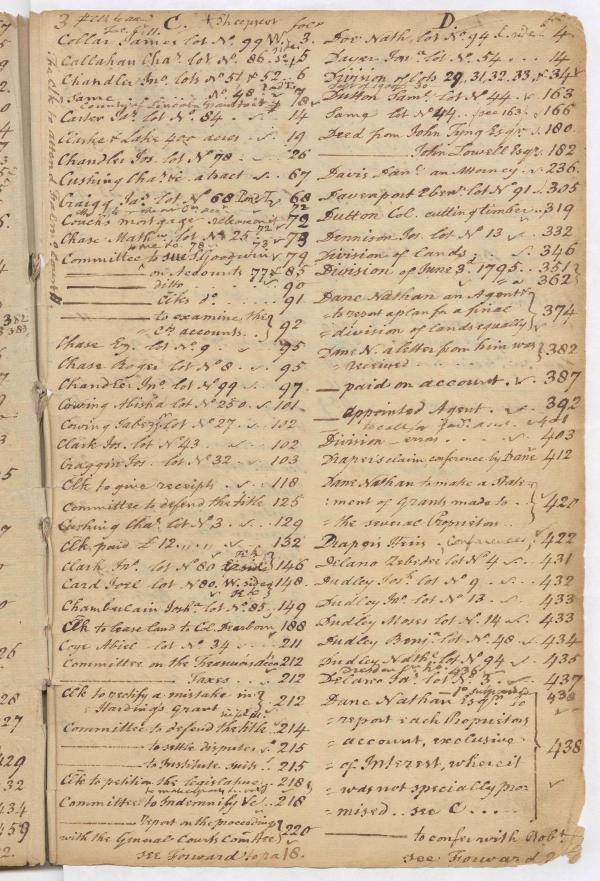 3
C.
foes
Collar James lot No. 99 W. 3.
Callahan Cha. lot No. 86. 5
Chandler Jno. lots No. 51 & 52 .. 6
Same No. 48 7
County of Lincoln 18
Carter Jas. lot No. 84 14
Clarke & Lake 400 acres 19
Chandler Jos. lot No. 78 26
Cushing Cha. &c. abract 67
Craigg Jas. lot No. 68 68
Couch's mortgage 72
Chase Mathw. lot No. 25 73
Committee to sue S. Goodwin 79
on Accounts 77 & 85
ditto 90
Clks do. 91
to examine the
Clk accounts 92
Chase Ez. lot No. 9 95
Chase Roger lot No. 8 95
Chandler Jno. lot No. 99 97
Cowing Abisha lot No. 250 101
Cowing lot No. 27 102
Clark Jos. lot No. 43 102
Craggin Jos. lot No. 32 103
Clk to give receipts 118
Committee to defend the title 125
Cushing Cha. lot No. 3 129
Clk paid £12 132
Clark Jno. lot No. 80 146
Card Joel lot No. 80. W. side 148
Chamberlain Josh. lot No. 85 149
Clk to lease land to Col. Dearborn 188
Coye Abiel lot No. 34 211
Committee on the Treasurers acco 212
Taxes 212
Clk to rectify a mistake in
Harding's Grant 212
Committee to defend the title 214
to settle disputes 215
to Institute Suits 215
Clk to petition the legislature 218
Committee to Indemnify &c 218
Report on the proceedings
with the General Courts Comttee 220
see Forward to pa 18.
D.
Doe Nath. lot No. 94 E. side 4.
Davis Jna. lot No. 54 14
Division of lots 29, 31, 32, 33, & 34
Dutton Saml. lot No. 44 163
Same lot No. 44. (see 163) 166
Deed from John Tyng Esqr. 180
John Lowell Esqr. 182
Davis Danl. an Attorney 236
Davenport Ebenr. lot No. 91 305
Dutton Col. cutting timber 319
Dennison Jos. lot No. 13 332
Division of lands 346
Division of June 3. 1795 351
362
Dane Nathan an Agent
to report a plan for a final
division of lands equally 374
Dane N. a letter from him was
received 382
paid on account 387
appointed Agent 392
401
Division errors 403
Drapers claim conference by Dane 412
Dane Nathan to make a State-
ment of Grants made to
the several Proprietors 420
Drapers Heirs Conferences 422
Delano Zebedee lot No. 4 431
Dudley Josh. lot No. 9 432
Dudley Jno. lot No. 13 433
Dudley Moses lot No. 14 433
Dudley Benj. lot No. 48 434
Dudley Nathl. lot No. 94 435
Delano Jas. lot No. 3 437
Dane Nathan Esqr. to 438
report each Proprietors
account, exclusive
of Interest, where it
was not specially pro-
mised .. see C 438
to confer with Robt.
see Forward